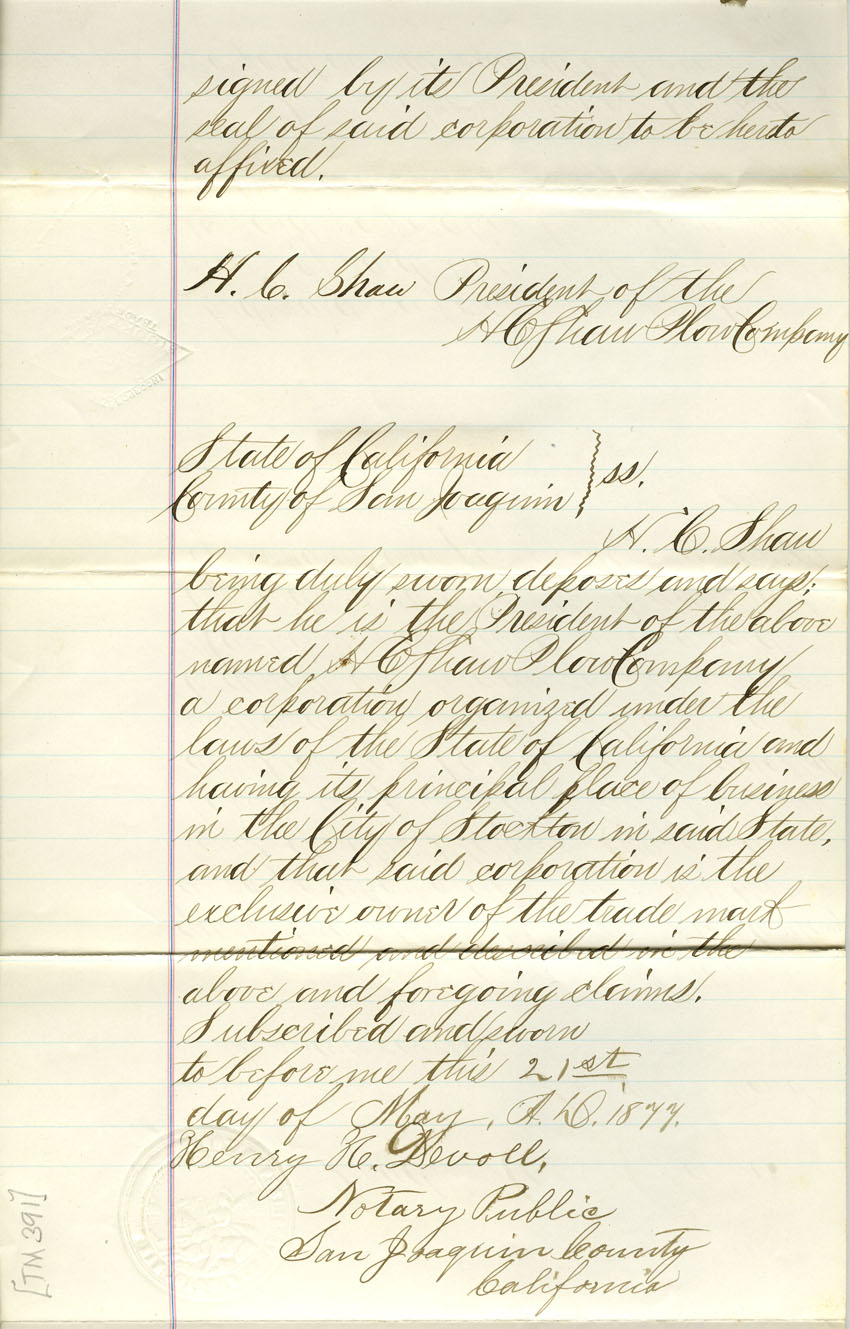 signed by its President and the
seal of said corporation to be hereto
affixed.
H. C. Shaw President of the
H C Shaw Plow Company
State of California
County of San Joaquin } ss.
H. C. Shaw
being duly sworn, deposes and says;
that he is the President of the above
named H C Shaw Plow Company
a corporation organized under the
laws of the State of California and
having its principal place of business
in the City of Stockton in said State,
and that said corporation is the
exclusive owner of the trade mark
mentioned and described in the
above and foregoing claims.
Subscribed and sworn
to before me this 21st
day of May, A. D. 1877.
Henry H. Devoll,
Notary Public
San Joaquin County
California
[TM 391]